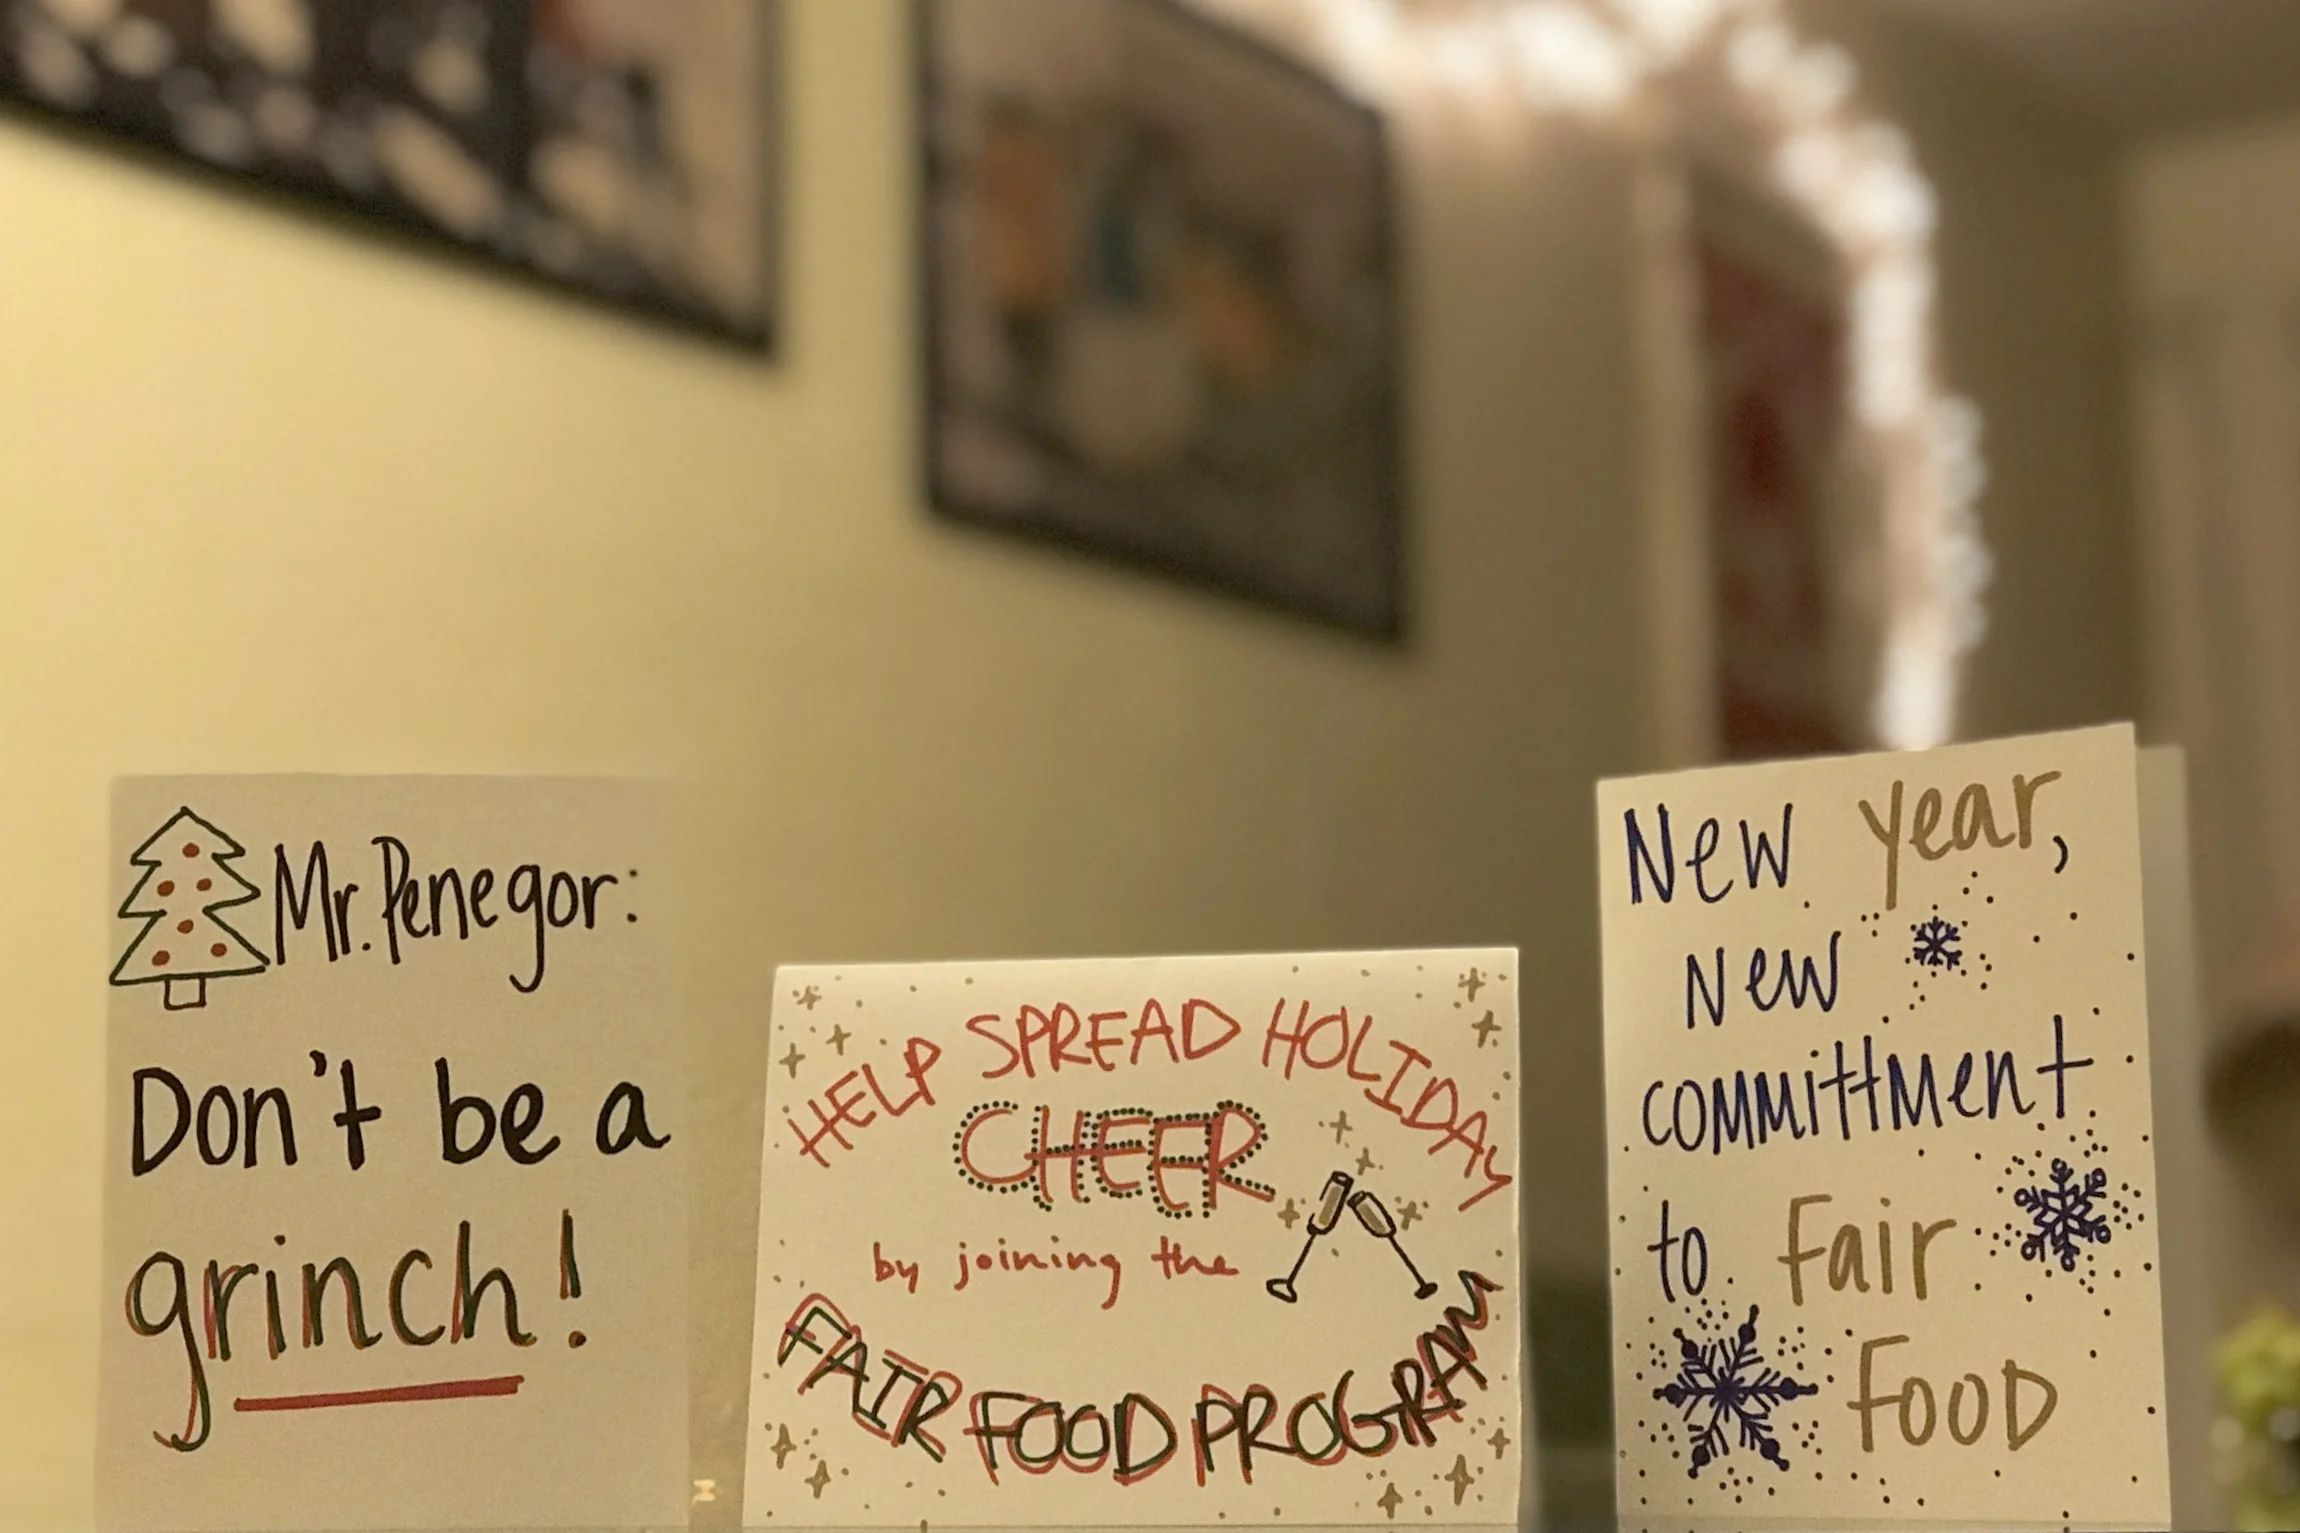 Mr. Penegor:
Don't be a
grinch!
HELP SPREAD HOLIDAY
CHEER
by joining the
FAIR FOOD PROGRAM
New year,
New
commitment
to Fair
Food